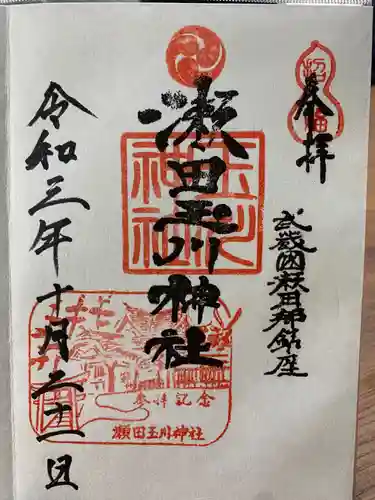 奉拝
武蔵国瀬田郷鎮座
瀬田玉川神社
玉川
神社
参拝記念
瀬田玉川神社
令和三年十月二十一日